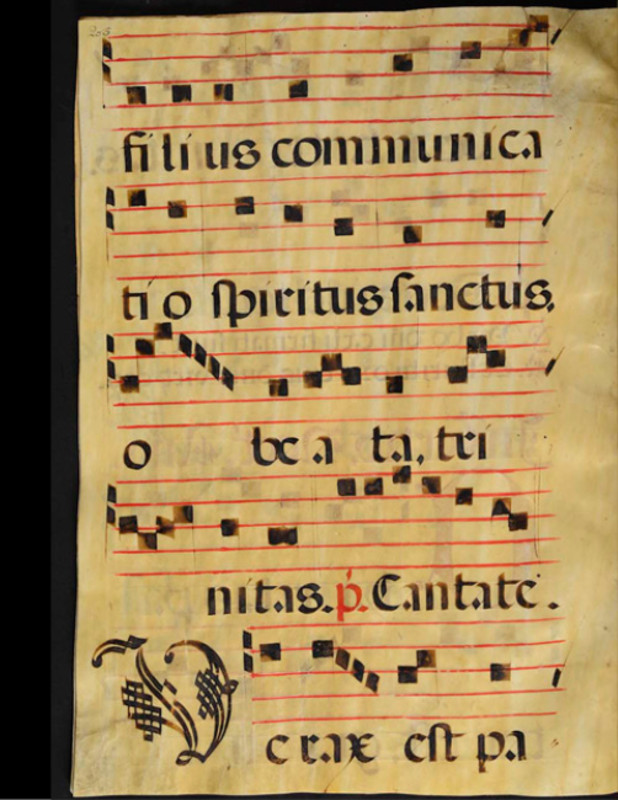 fi li us communica
ti o spiritus sanctus.
o be a ta, tri
nitas. p. Cantate.
V erax est pa